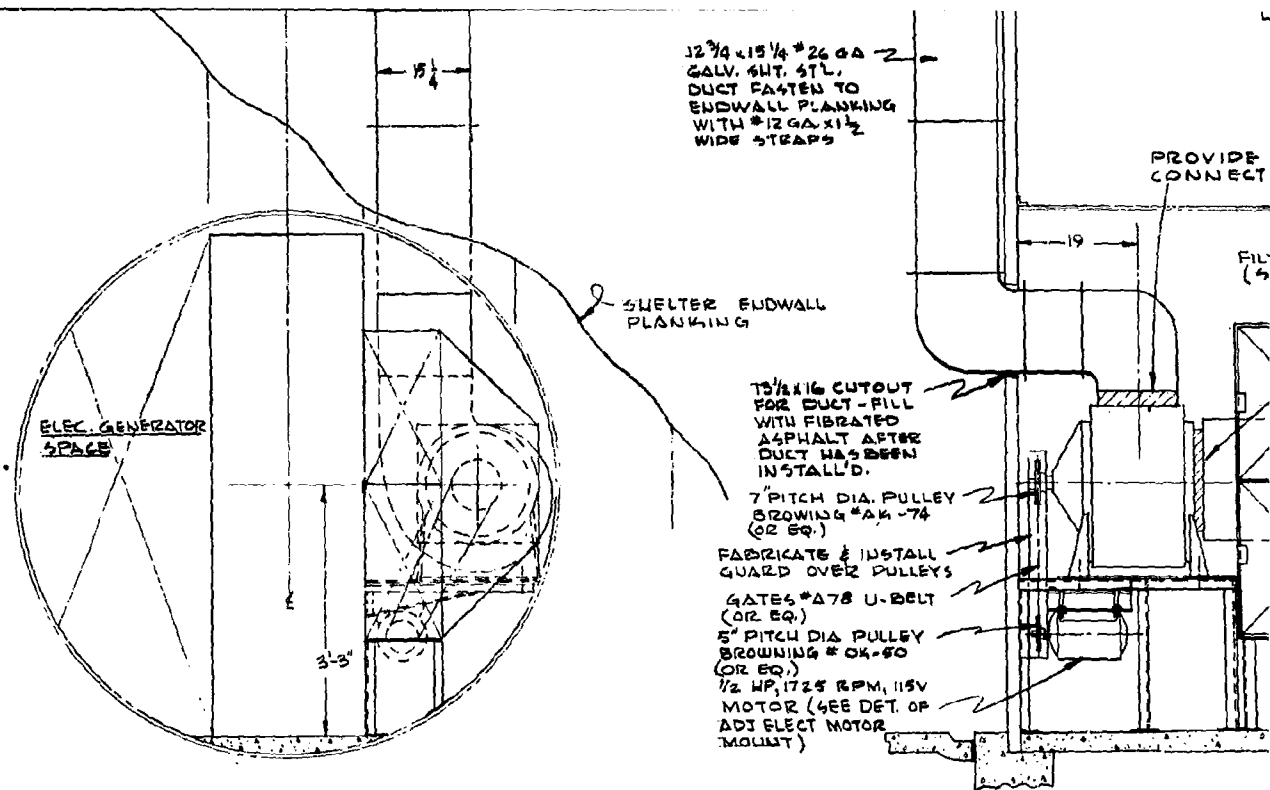 15 1/4
ELEC. GENERATOR
SPACE
3'-3"
SHELTER ENDWALL
PLANKING
12 3/4 x 15 1/4 #26 GA
GALV. SHT. STL.
DUCT FASTEN TO
ENDWALL PLANKING
WITH #12 GA x 1 1/2
WIDE STRAPS
PROVIDE
CONNECT
19
FIL
13 1/2 x 16 CUTOUT
FOR DUCT - FILL
WITH FIBRATED
ASPHALT AFTER
DUCT HAS BEEN
INSTALL'D.
7" PITCH DIA. PULLEY
BROWING #AK-74
(OR EQ.)
FABRICATE & INSTALL
GUARD OVER PULLEYS
GATES #A78 U-BELT
(OR EQ.)
5" PITCH DIA PULLEY
BROWNING # OK-50
(OR EQ.)
1/2 HP, 1725 RPM, 115V
MOTOR (SEE DET. OF
ADJ ELECT MOTOR
MOUNT)